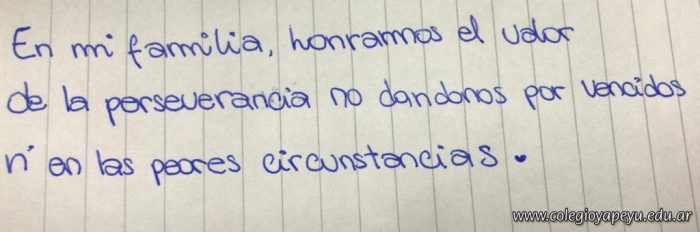 En mi familia, honramos el valor
de la perseverancia no dandonos por vencidos
ni en las peores circunstancias.
www.colegioyapeyu.edu.ar